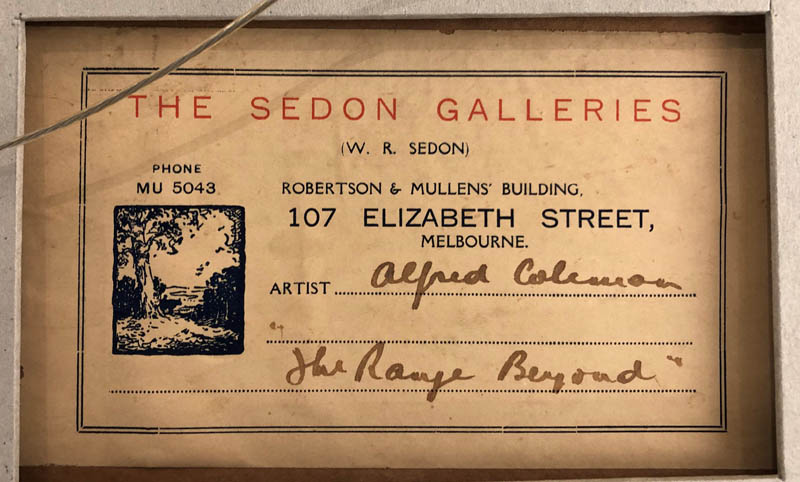 THE SEDON GALLERIES
(W. R. SEDON)
PHONE
MU 5043
ROBERTSON & MULLENS' BUILDING,
107 ELIZABETH STREET,
MELBOURNE.
ARTIST Alfred Coleman
"
The Range Beyond"